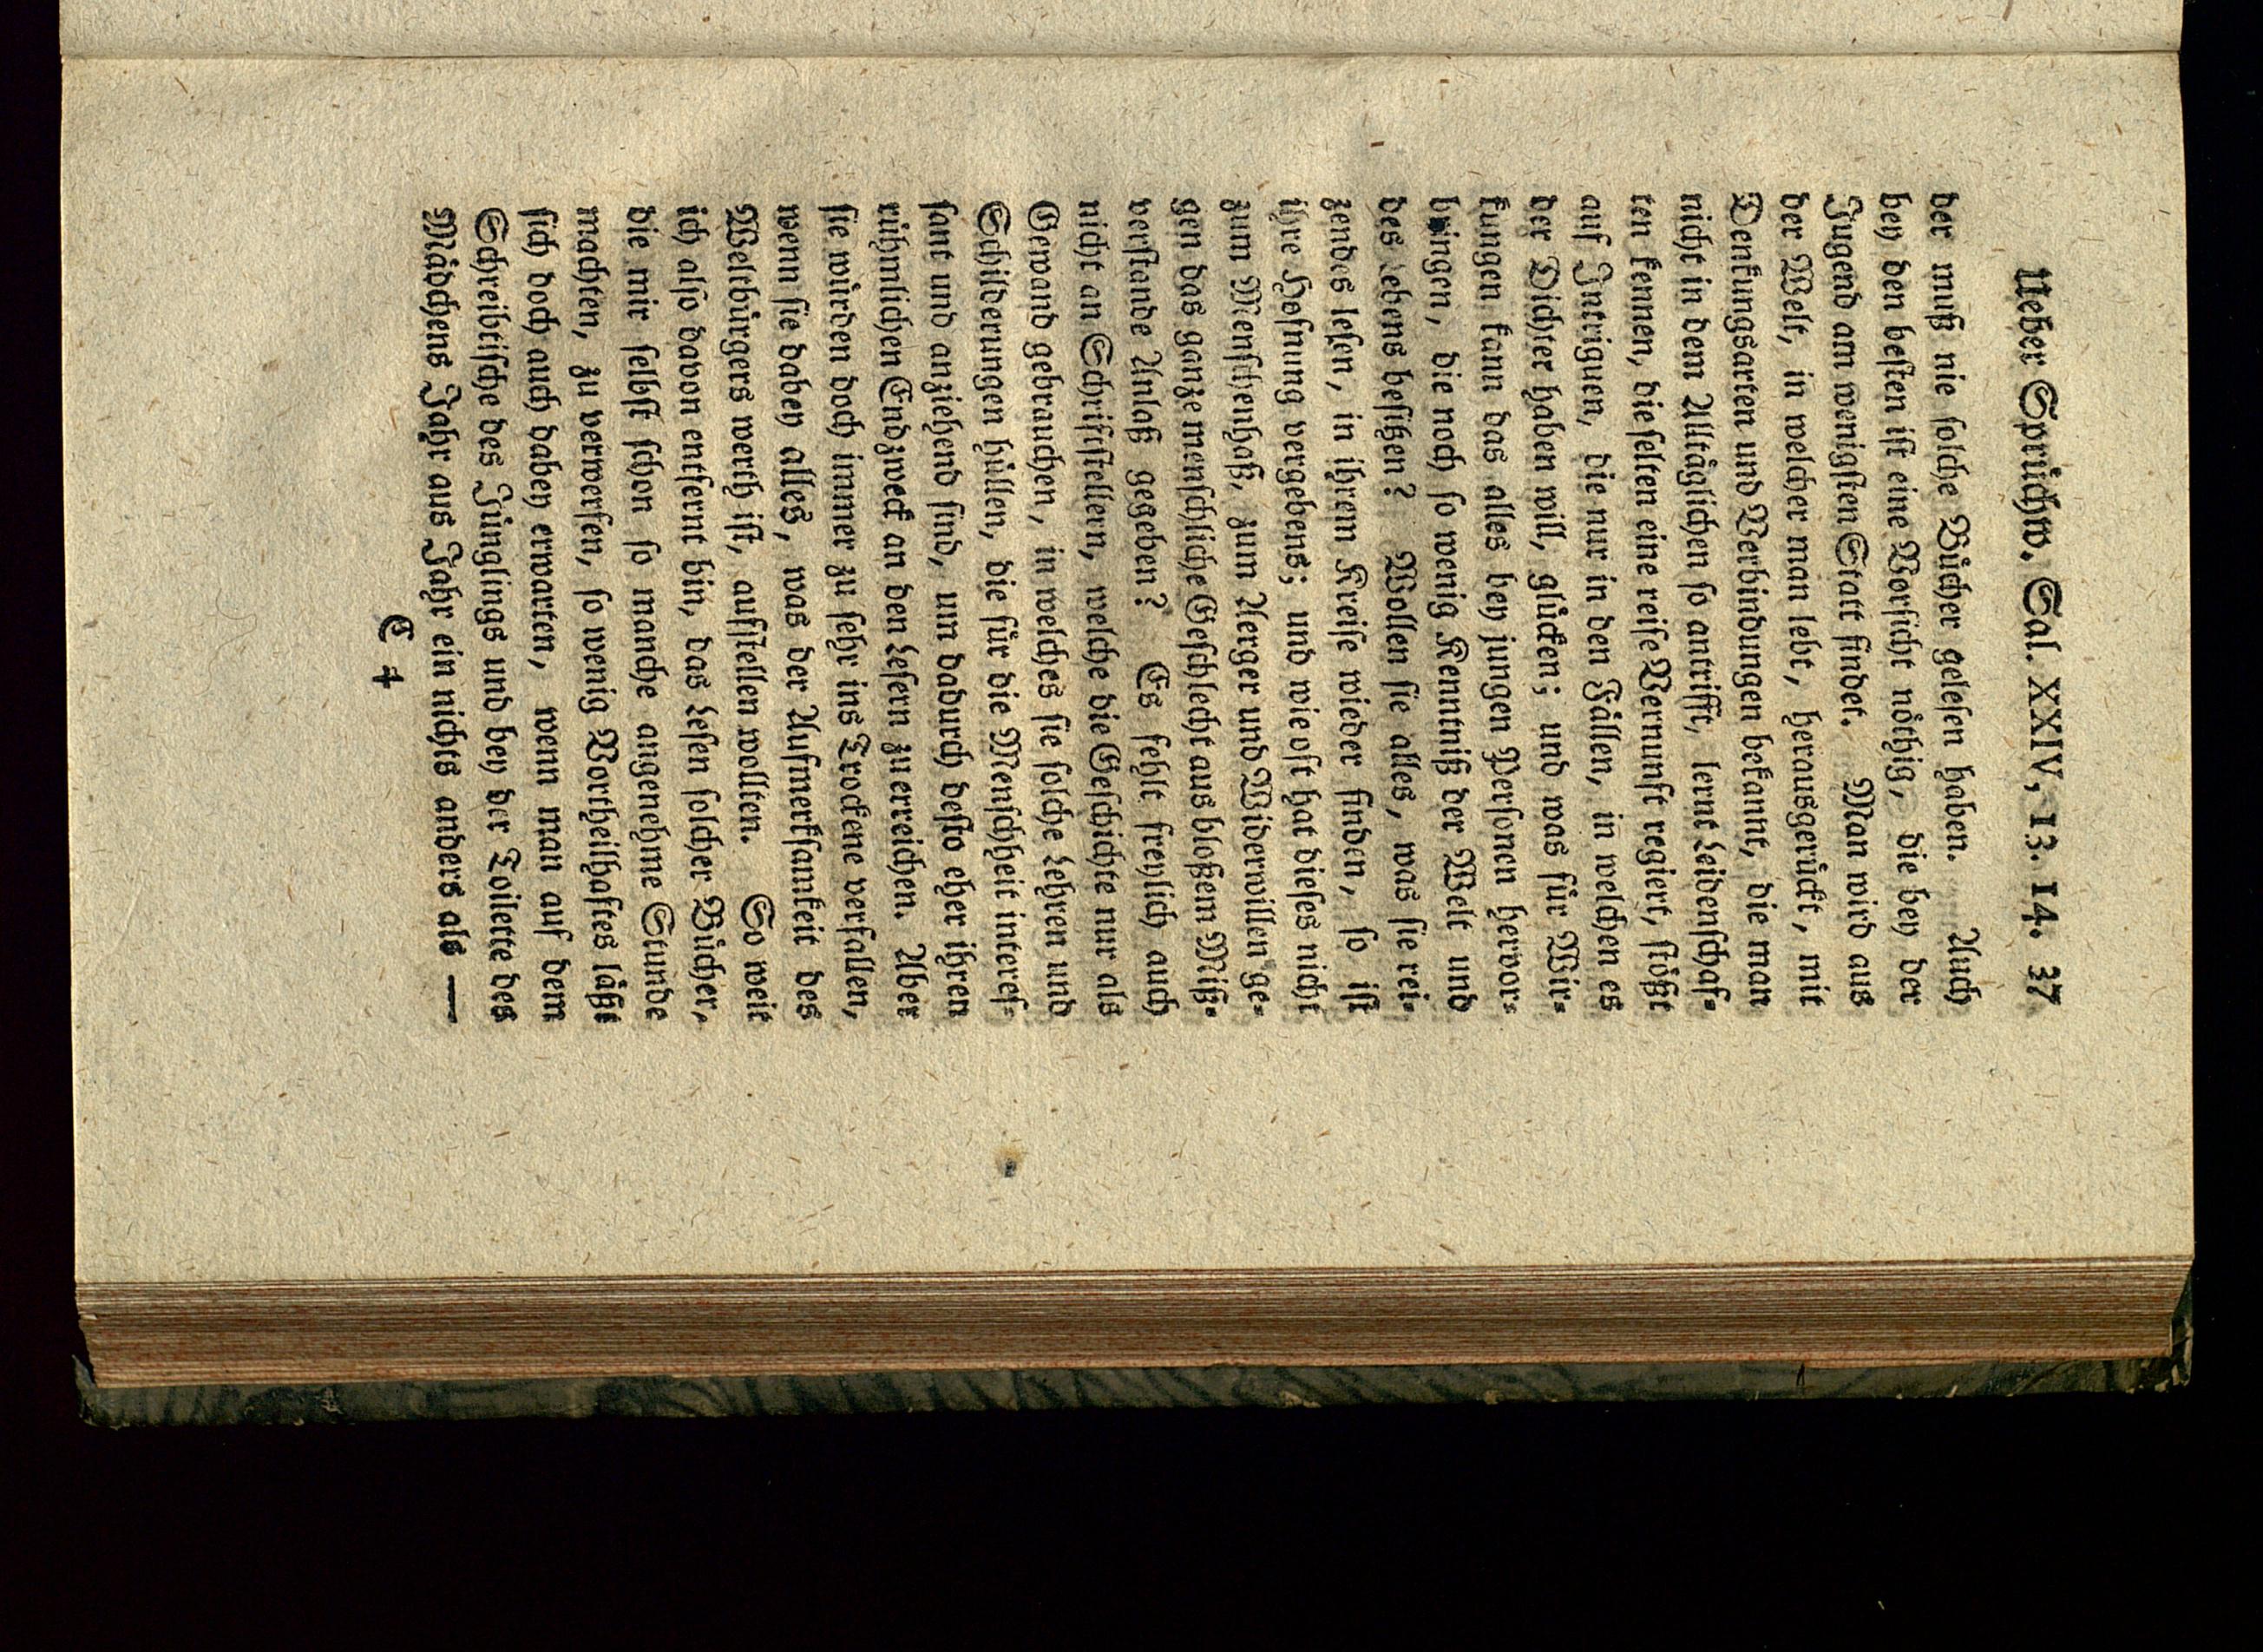 Ueber Sprüchw. Sal. XXIV, 13. 14. 37
der muß nie ſolche Bücher geleſen haben. Auch
bey den beſten iſt eine Vorſicht nöthig, die bey der
Jugend am wenigſten Statt findet. Man wird aus
der Welt, in welcher man lebt, herausgerückt, mit
Denkungsarten und Verbindungen bekannt, die man
nicht in dem Alltäglichen ſo antrifft, lernt Leidenſchaf-
ten kennen, die ſelten eine reife Vernunft regiert, ſtößt
auf Intriguen, die nur in den Fällen, in welchen es
der Dichter haben will, glücken; und was für Wir-
kungen kann das alles bey jungen Perſonen hervor-
bringen, die noch ſo wenig Kenntniß der Welt und
des Lebens beſitzen? Wollen ſie alles, was ſie rei-
zendes leſen, in ihrem Kreiſe wieder finden, ſo iſt
ihre Hofnung vergebens; und wie oft hat dieſes nicht
zum Menſchenhaß, zum Aerger und Widerwillen ge-
gen das ganze menſchliche Geſchlecht aus bloßem Miß-
verſtande Anlaß gegeben? Es fehlt freylich auch
nicht an Schriftſtellern, welche die Geſchichte nur als
Gewand gebrauchen, in welches ſie ſolche Lehren und
Schilderungen hüllen, die für die Menſchheit intereſ-
ſant und anziehend ſind, um dadurch deſto eher ihren
rühmlichen Endzweck an den Leſern zu erreichen. Aber
ſie würden doch immer zu ſehr ins Trockene verfallen,
wenn ſie dabey alles, was der Aufmerkſamkeit des
Weltbürgers werth iſt, aufſtellen wollten. So weit
ich alſo davon entfernt bin, das Leſen ſolcher Bücher,
die mir ſelbſt ſchon ſo manche angenehme Stunde
machten, zu verwerfen, ſo wenig Vortheilhaftes läßt
ſich doch auch dabey erwarten, wenn man auf dem
Schreibtiſche des Jünglings und bey der Toilette des
Mädchens Jahr aus Jahr ein nichts anders als —
C 4